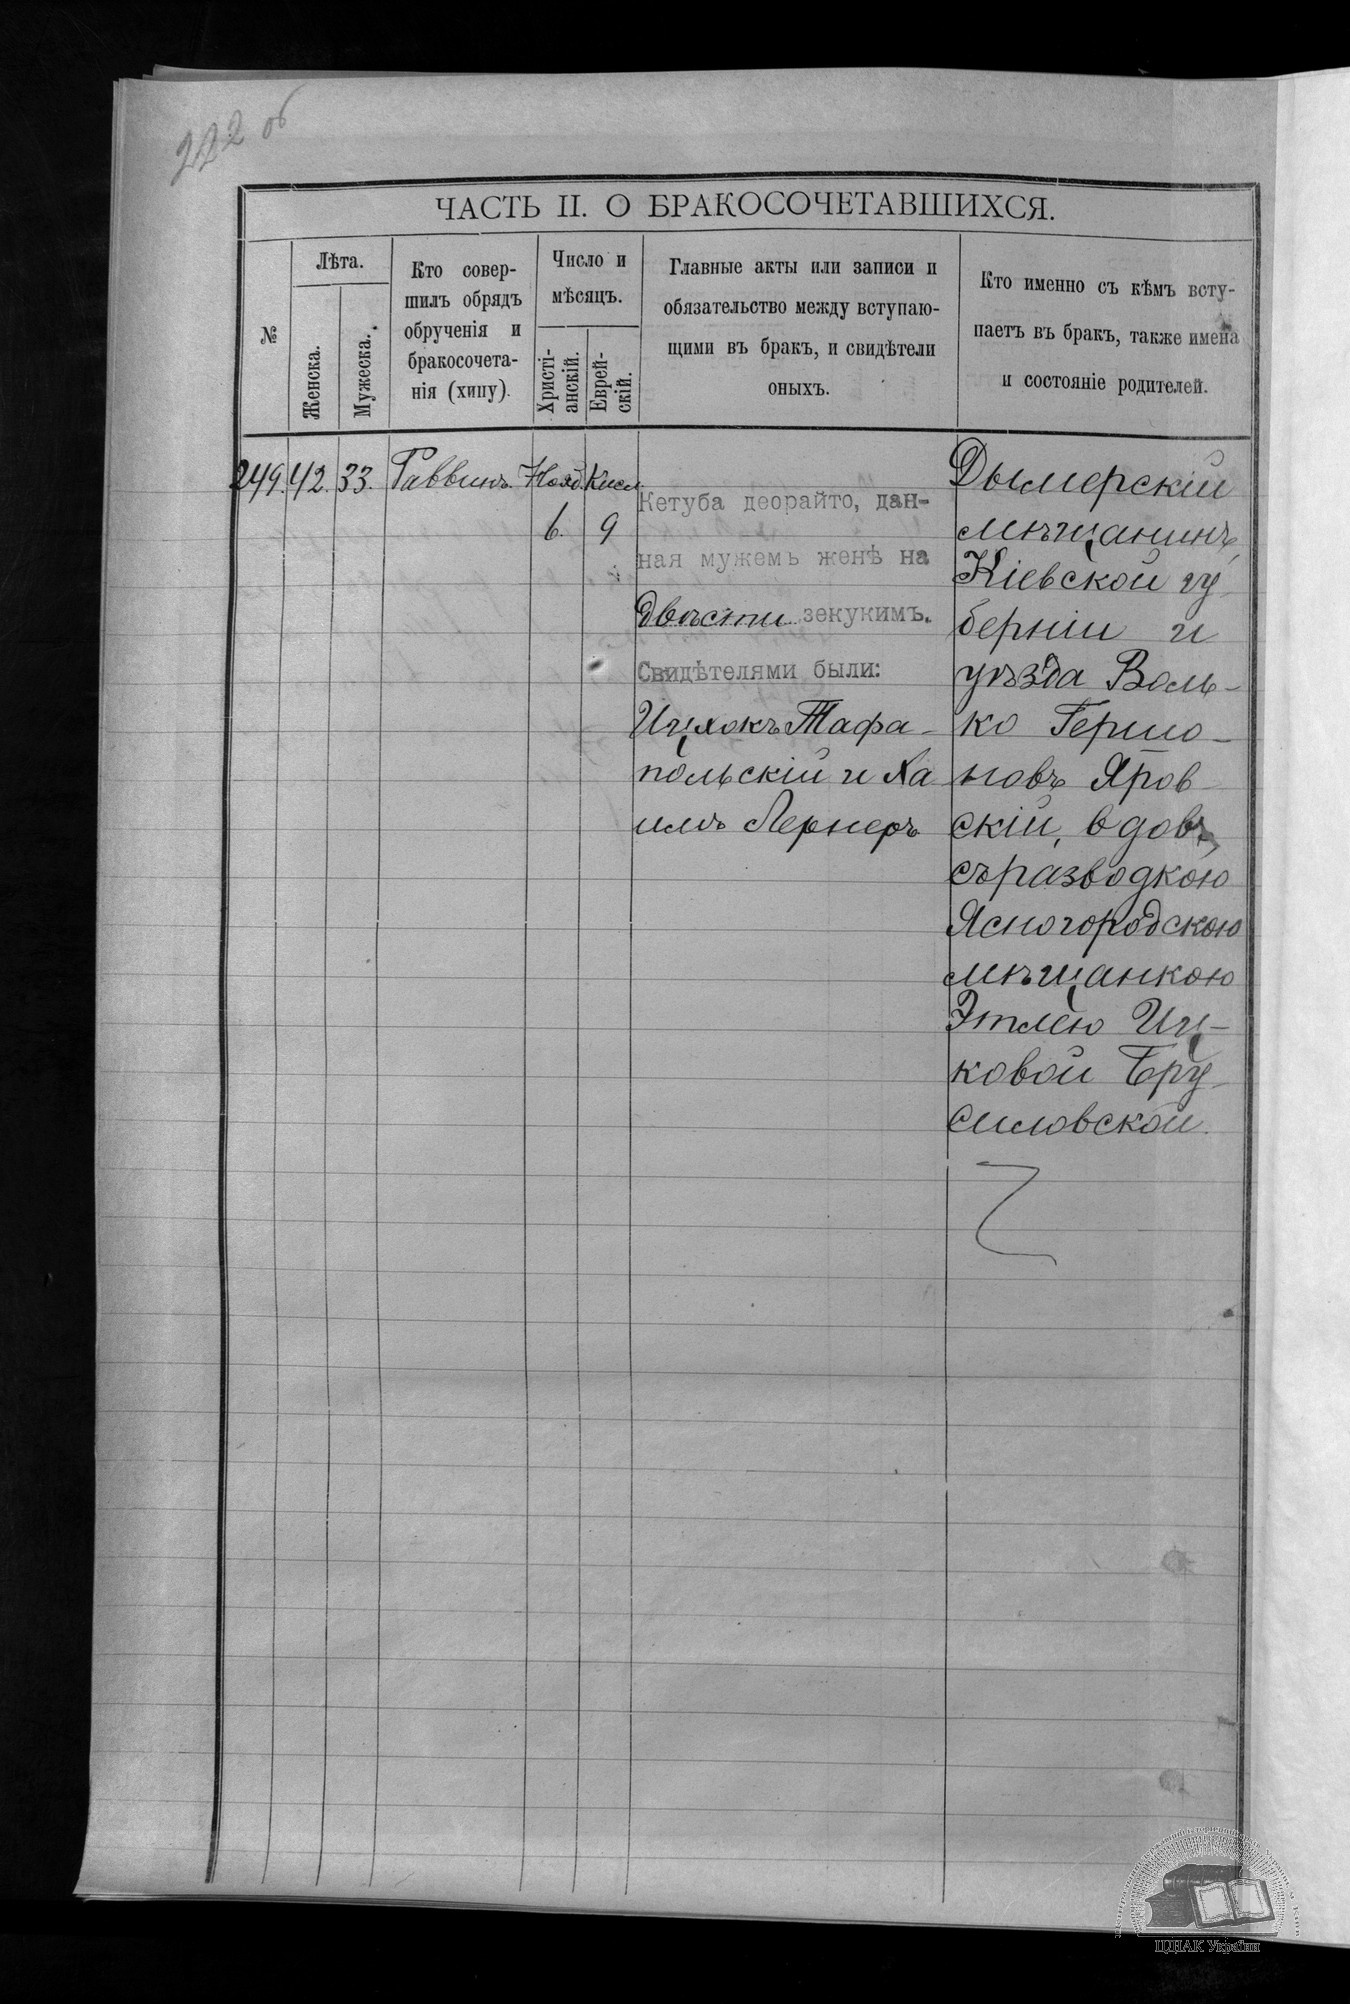 222 об
ЧАСТЬ II. О БРАКОСОЧЕТАВШИХСЯ.
№
Лѣта.
Женска.
Мужеска.
Кто совер-
шилъ обрядъ
обрученія и
бракосочета-
нія (хипу).
Число и
мѣсяцъ.
Христі-
анскій.
Еврей-
скій.
Главные акты или записи и
обязательство между вступаю-
щими въ бракъ, и свидѣтели
оныхъ.
Кто именно съ кѣмъ всту-
паетъ въ бракъ, также имена
и состояніе родителей.
249. 42. 33. Раввинъ. Нояб. Кисл.
6. 9
Кетуба деорайто, дан-
ная мужемъ женѣ на
двѣсти зекукимъ.
Свидѣтелями были:
Ицхокъ Тафа-
польскій и Ха
имъ Лернеръ
Дымерскій
мѣщанинъ,
Кіевской гу-
берніи и
уѣзда Воль-
ко Гершо-
новъ Яров-
скій, вдовъ,
съ разводкою
Ясногородскою
мѣщанкою
Этлею Иц-
ковой Бру-
силовской.
ЦДІАК України